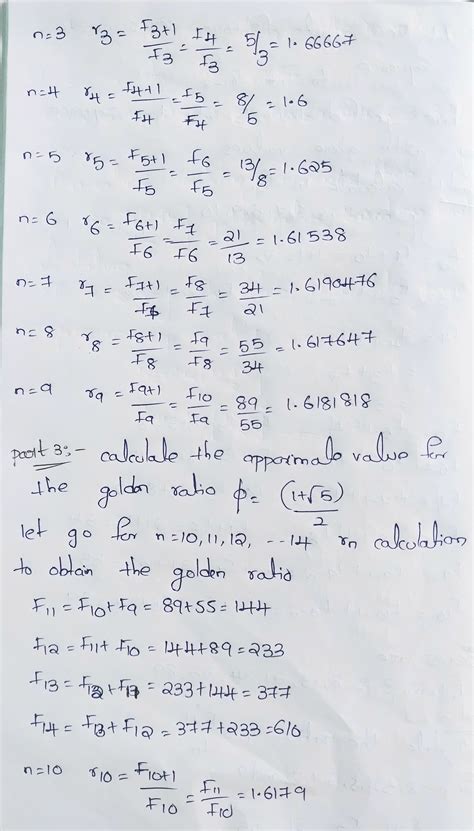 n=3 r3 = F3+1/F3 = F4/F3 = 5/3 = 1.66667
n=4 r4 = F4+1/F4 = F5/F4 = 8/5 = 1.6
n=5 r5 = F5+1/F5 = F6/F5 = 13/8 = 1.625
n=6 r6 = F6+1/F6 = F7/F6 = 21/13 = 1.61538
n=7 r7 = F7+1/F7 = F8/F7 = 34/21 = 1.6190476
n=8 r8 = F8+1/F8 = F9/F8 = 55/34 = 1.617647
n=9 r9 = F9+1/F9 = F10/F9 = 89/55 = 1.6181818
part 3:- calculate the apporimale value for
the golden ratio ϕ= (1+√5)/2
let go for n=10,11,12, --14 rn calculation
to obtain the golden ratio
F11 = F10+F9 = 89+55 = 144
F12 = F11+F10 = 144+89 = 233
F13 = F12+F11 = 233+144 = 377
F14 = F13+F12 = 377+233 = 610
n=10 r10 = F10+1/F10 = F11/F10 = 1.6179